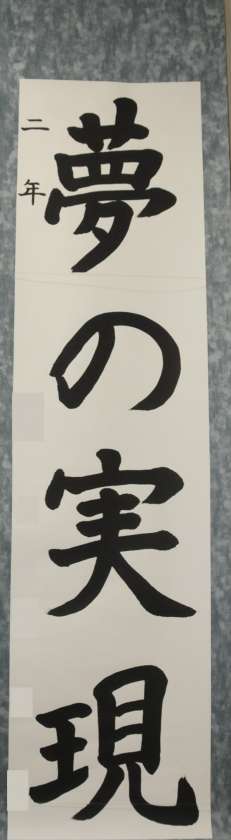 夢の実現
二年